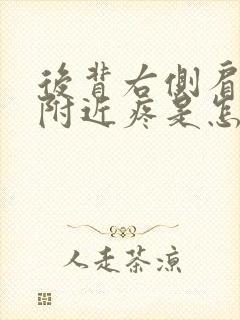 後背右側肩
附近疼是怎
人走茶涼